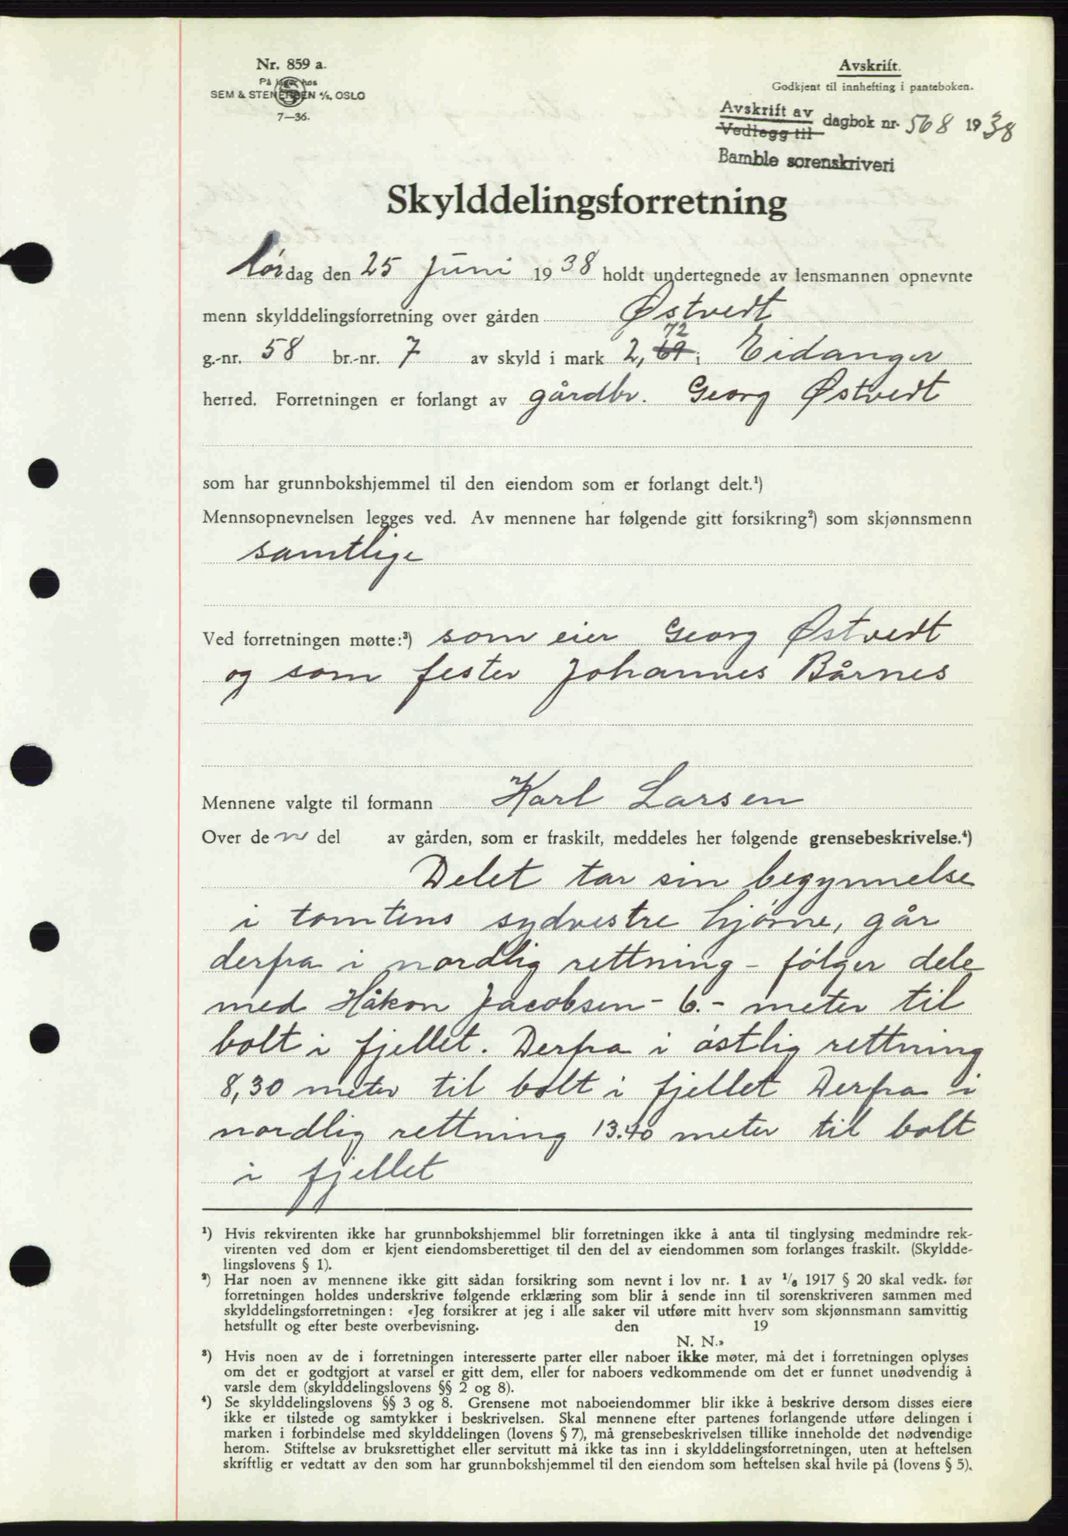 Nr. 859 a.
På lager hos
SEM & STENERSEN A/S, OSLO
7—36.
Avskrift.
Godkjent til innhefting i panteboken.
Avskrift av
Vedlegg til
dagbok nr. 568 1938
Bamble sorenskriveri
Skylddelingsforretning
Lørdag den 25 juni 1938 holdt undertegnede av lensmannen opnevnte
menn skylddelingsforretning over gården Østvedt
g.-nr. 58 br.-nr. 7 av skyld i mark 2,72 i Eidanger
herred. Forretningen er forlangt av gårdbr. Georg Østvedt
som har grunnbokshjemmel til den eiendom som er forlangt delt.¹)
Mennsopnevnelsen legges ved. Av mennene har følgende gitt forsikring²) som skjønnsmenn
samtlige
Ved forretningen møtte:³) som eier Georg Østvedt
og som fester Johannes Bårnes
Mennene valgte til formann Karl Larsen
Over den del av gården, som er fraskilt, meddeles her følgende grensebeskrivelse.⁴)
Delet tar sin begynnelse
i tomtens sydvestre hjørne, går
derfra i nordlig rettning - følger dele
med Håkon Jacobsen - 6.- meter til
bolt i fjellet. Derfra i østlig rettning
8,30 meter til bolt i fjellet Derfra i
nordlig rettning 13.40 meter til bolt
i fjellet
¹) Hvis rekvirenten ikke har grunnbokshjemmel blir forretningen ikke å anta til tinglysing medmindre rek-
virenten ved dom er kjent eiendomsberettiget til den del av eiendommen som forlanges fraskilt. (Skyldde-
lingslovens § 1).
²) Har noen av mennene ikke gitt sådan forsikring som nevnt i lov nr. 1 av ¹/₆ 1917 § 20 skal vedk. før
forretningen holdes underskrive følgende erklæring som blir å sende inn til sorenskriveren sammen med
skylddelingsforretningen: «Jeg forsikrer at jeg i alle saker vil utføre mitt hverv som skjønnsmann samvittig
hetsfullt og efter beste overbevisning. den 19
N. N.»
³) Hvis noen av de i forretningen interesserte parter eller naboer ikke møter, må det i forretningen oplyses
om det er godtgjort at varsel er gitt dem, eller for naboers vedkommende om det er funnet unødvendig å
varsle dem (skylddelingslovens §§ 2 og 8).
⁴) Se skylddelingslovens §§ 3 og 8. Grensene mot naboeiendommer blir ikke å beskrive dersom disses eiere
ikke er tilstede og samtykker i beskrivelsen. Skal mennene efter partenes forlangende utføre delingen i
marken i forbindelse med skylddelingen (lovens § 7), må grensebeskrivelsen tillike inneholde det nødvendige
herom. Stiftelse av bruksrettighet eller servitutt må ikke tas inn i skylddelingsforretningen, uten at heftelsen
skriftlig er vedtatt av den som har grunnbokshjemmel til den eiendom som heftelsen skal hvile på (lovens § 5).